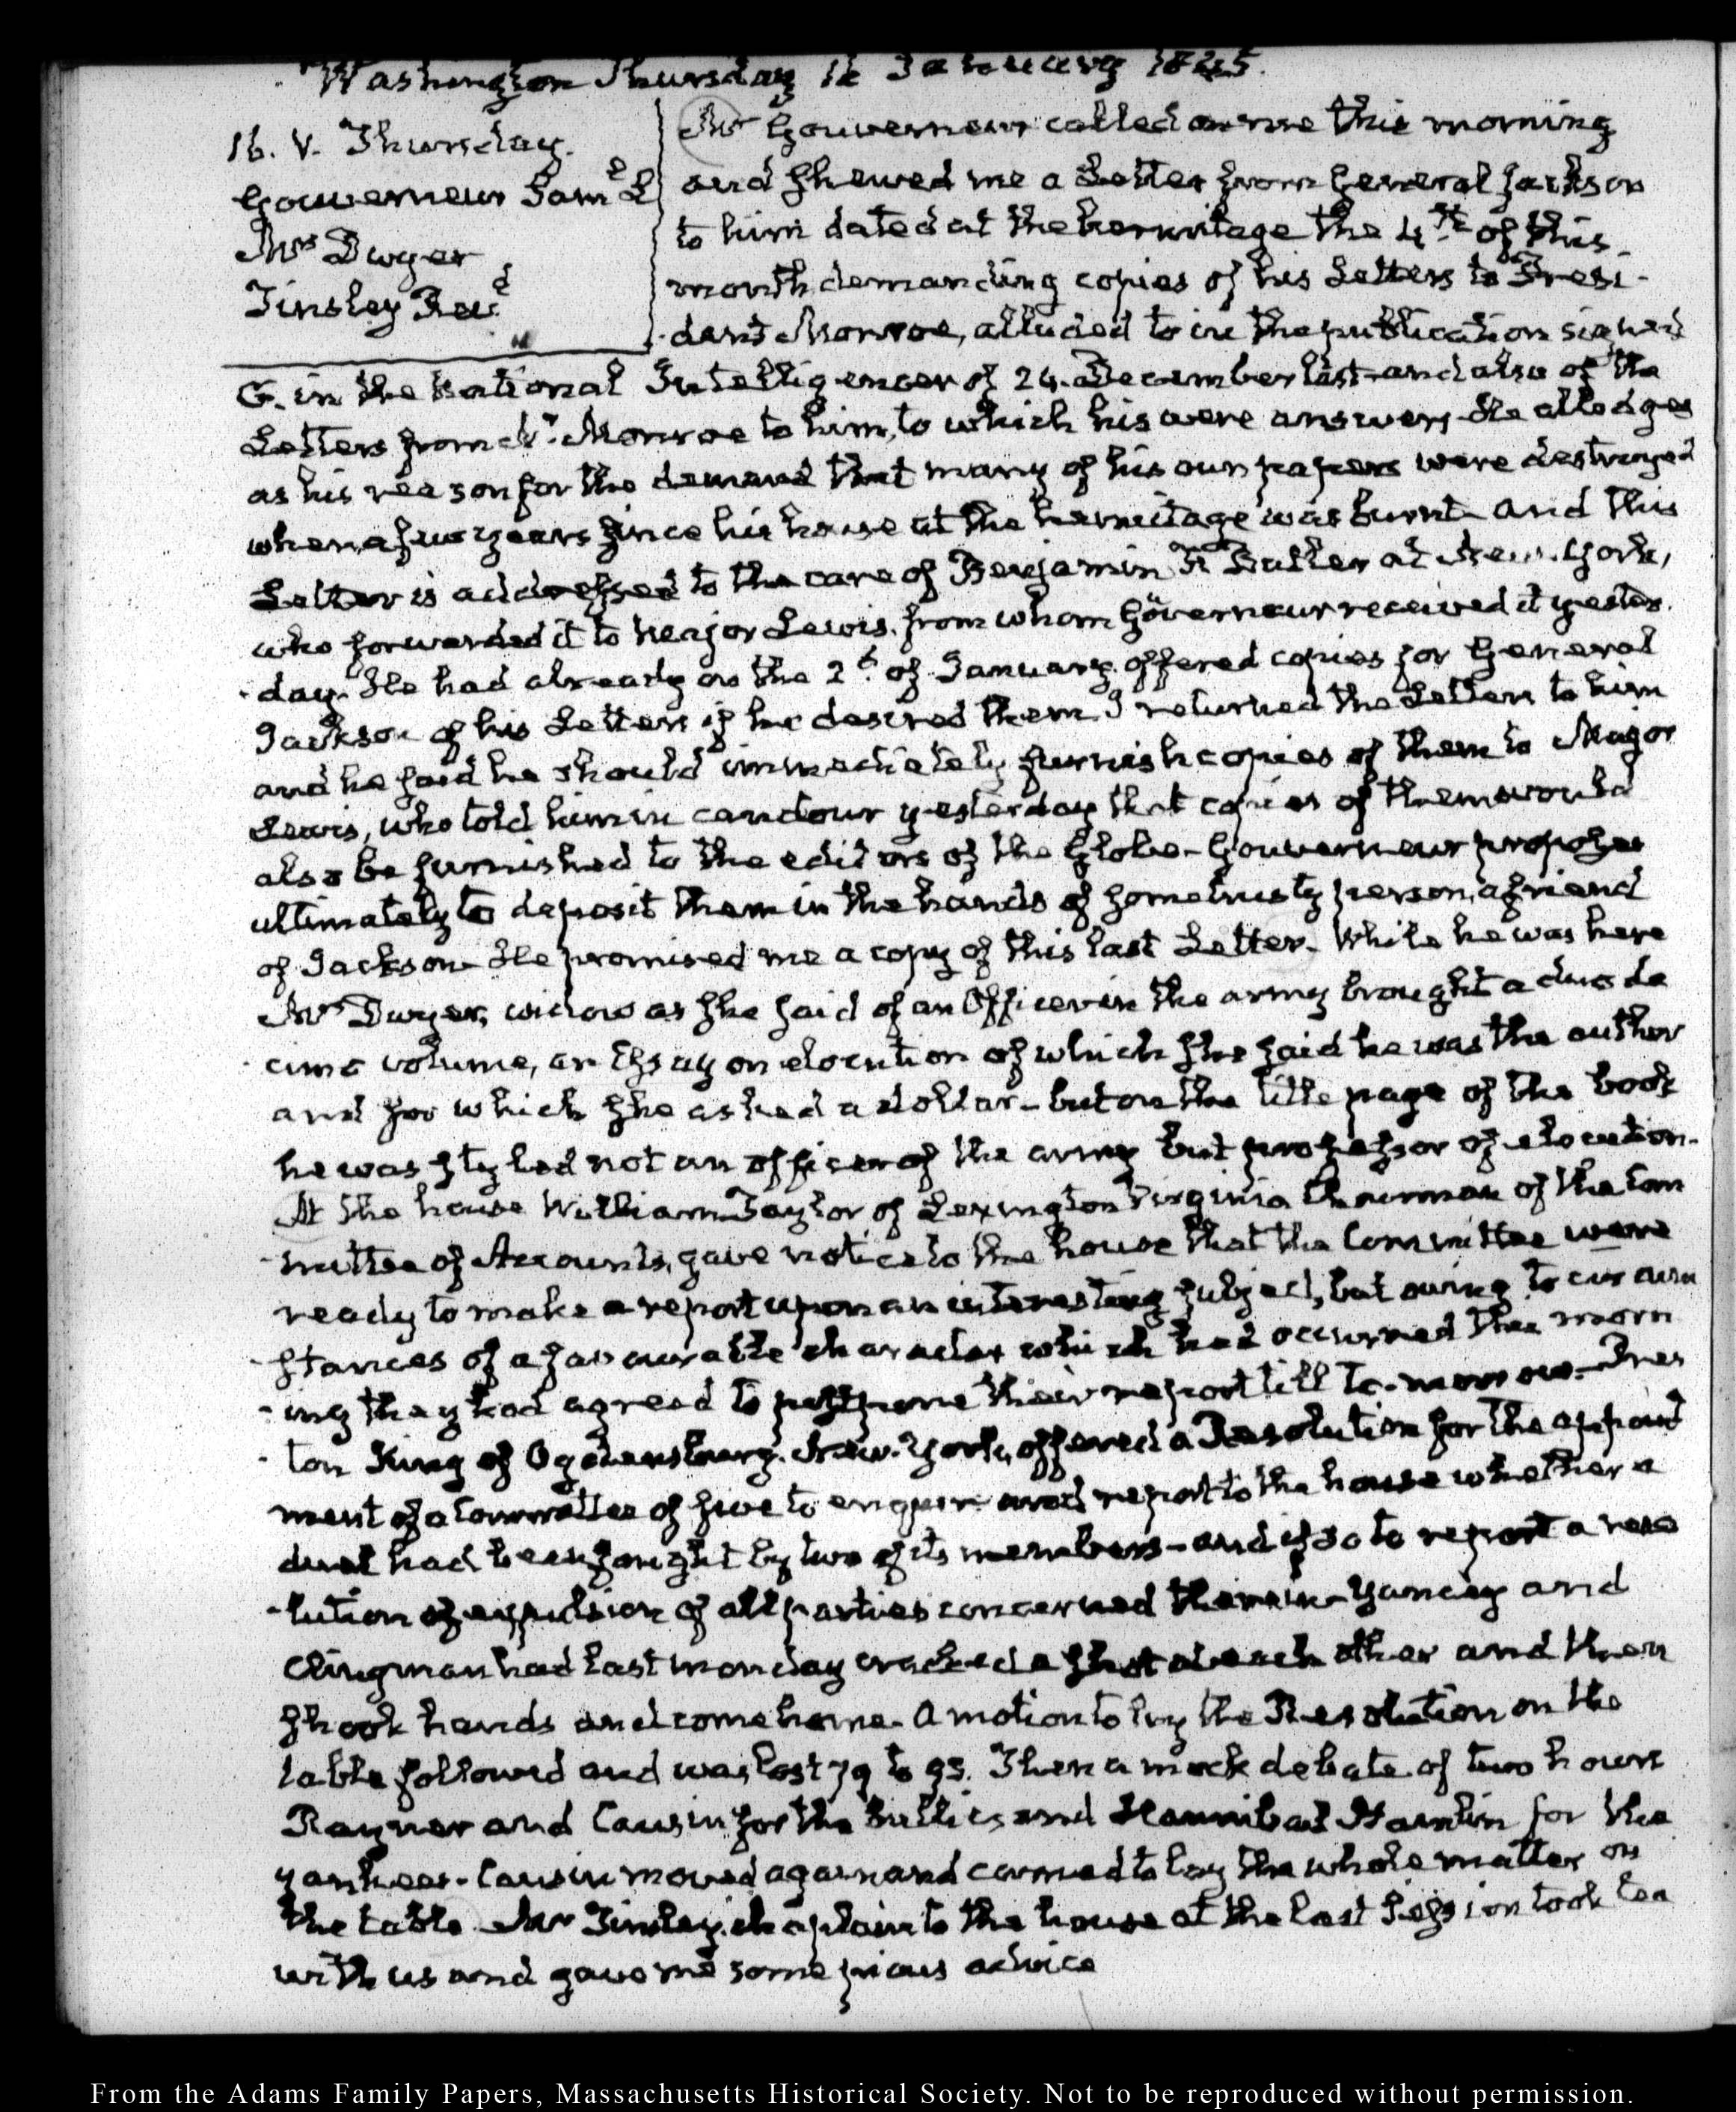 Washington Thursday 16 January 1845.
16. V. Thursday.
Gouverneur Saml. L
Mrs Dwyer
Tinsley Revd.
Mr Gouverneur called on me this morning
and shewed me a Letter from General Jackson
to him dated at the hermitage the 4th. of this
month demanding copies of his Letters to Presi-
dent Monroe, alluded to in the publication signed
G. in the National Intelligencer of 24. December last and also of the
Letters from Mr. Monroe to him, to which his were answers. He alledges
as his reason for the demand that many of his own papers were destroyed
when a few years since his house at the hermitage was burnt and this
Letter is addressed to the care of Benjamin F. Butler at New-York,
who forwarded it to Major Lewis, from whom Gouverneur received it yester-
day. He had already on the 2d. of January offered copies for General
Jackson of his Letters if he desired them. I returned the Letter to him
and he said he should immediately furnish copies of them to Major
Lewis, who told him in candour yesterday that copies of them would
also be furnished to the editors of the Globe. Gouverneur proposes
ultimately to deposit them in the hands of some trusty person, a friend
of Jackson. He promised me a copy of this last Letter. While he was here
Mrs Dwyer, widow as she said of an Officer in the army brought a duode
cimo volume, an Essay on elocution of which she said he was the author
and for which she asked a dollar—but on the title page of the book
he was styled not an officer of the army but professor of elocution.
At the house William Taylor of Lexington Virginia Chairman of the Com
mittee of Accounts, gave notice to the house that the Committee were
ready to make a report upon an interesting subject, but owing to circum
stances of a favourable character which had occurred this morn
ing they had agreed to postpone their report till to-morrow. Pres
ton King of Ogdensburg. New-York, offered a Resolution for the appoint
ment of a Committee of five to enquire and report to the house whether a
duel had been fought by two of its members—and if so to report a reso
lution of expulsion of all parties concerned therein. Yancey and
Clingman had last monday cracked a shot at each other and then
shook hands and come home. A motion to lay the Resolution on the
table followed and was lost 79 to 95. Then a mock debate of two hours
Rayner and Causin for the bullies and Hannibal Hamlin for the
yankees. Causin moved again and carried to lay the whole matter on
the table. Mr Tinsley, chaplain to the house at the last Session took tea
with us and gave me some pious advice
From the Adams Family Papers, Massachusetts Historical Society. Not to be reproduced without permission.